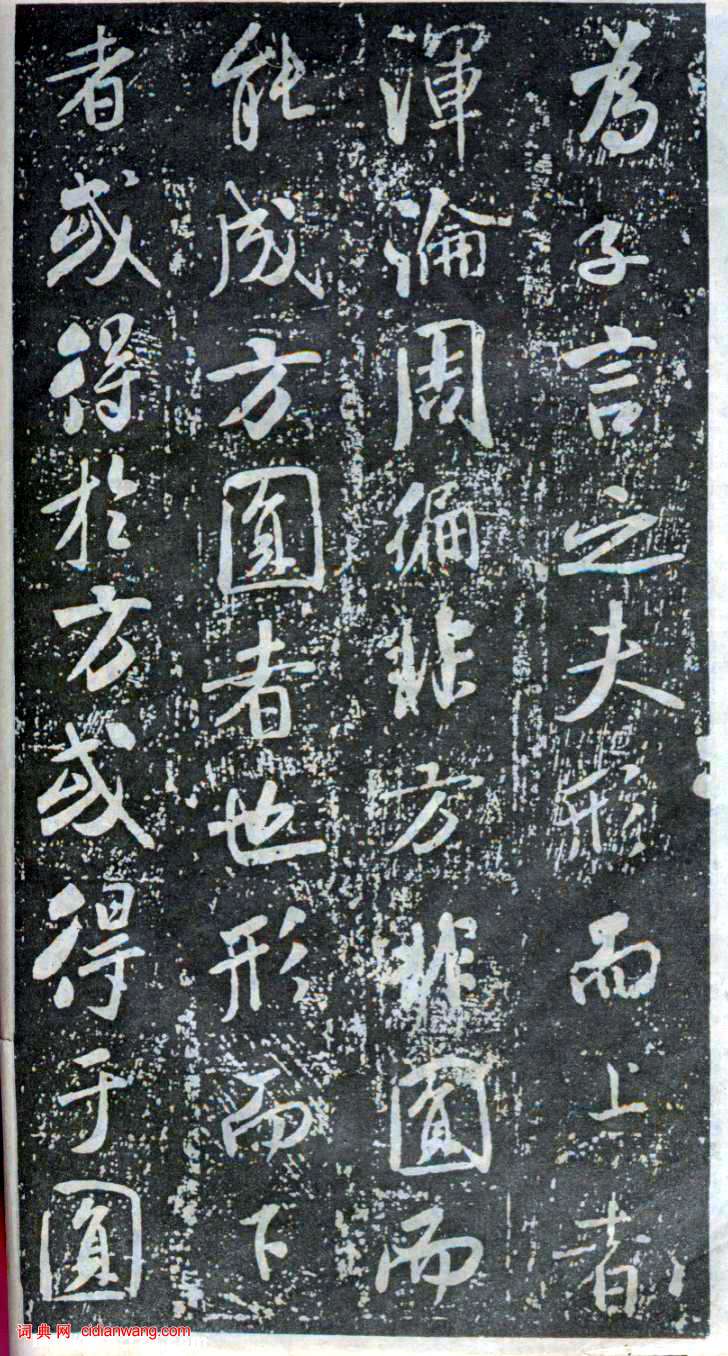 為子言之夫形而上者
渾淪周徧非方非圓而
能成方圓者也形而下
者或得於方或得于圓
词典网 cidianwang.com